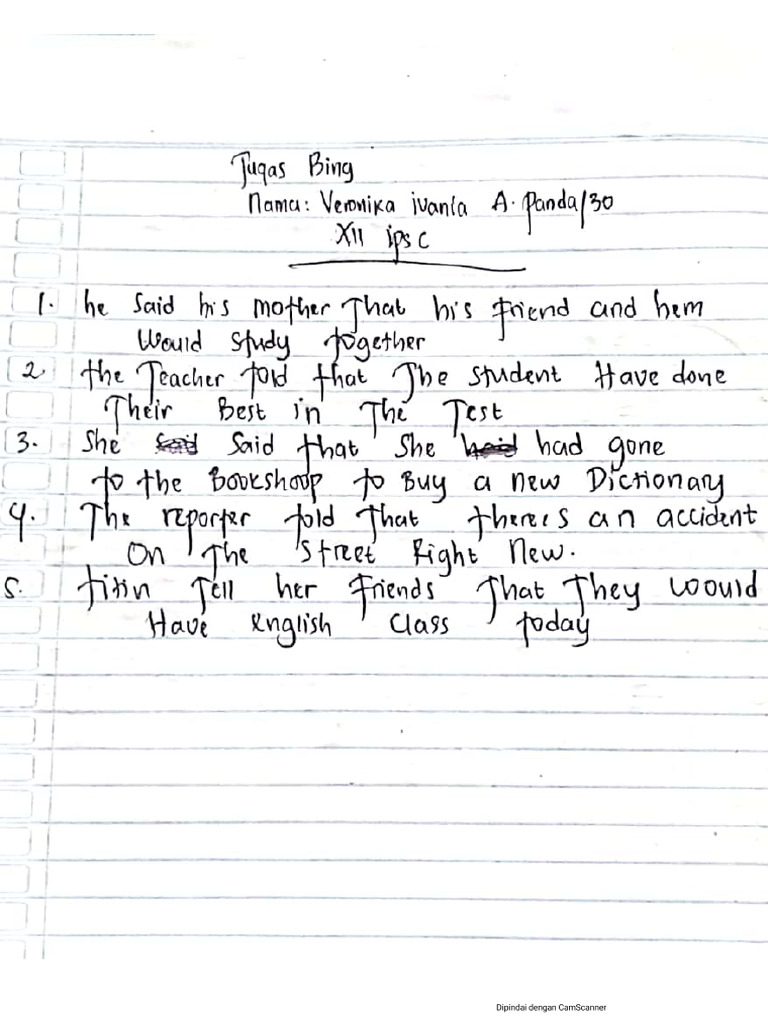 Tugas Bing
Nama: Veronika ivania A. Panda/30
XII ips C
1. he Said his mother That his friend and hem
Would study together
2. the Teacher told that The student Have done
Their Best in The Test
3. She Said that She had gone
to the Bookshoop to Buy a new Dictionary
4. The reporter told That there is an accident
On The Street Right New.
5. titin Tell her friends That They woould
Have English Class today
Dipindai dengan CamScanner